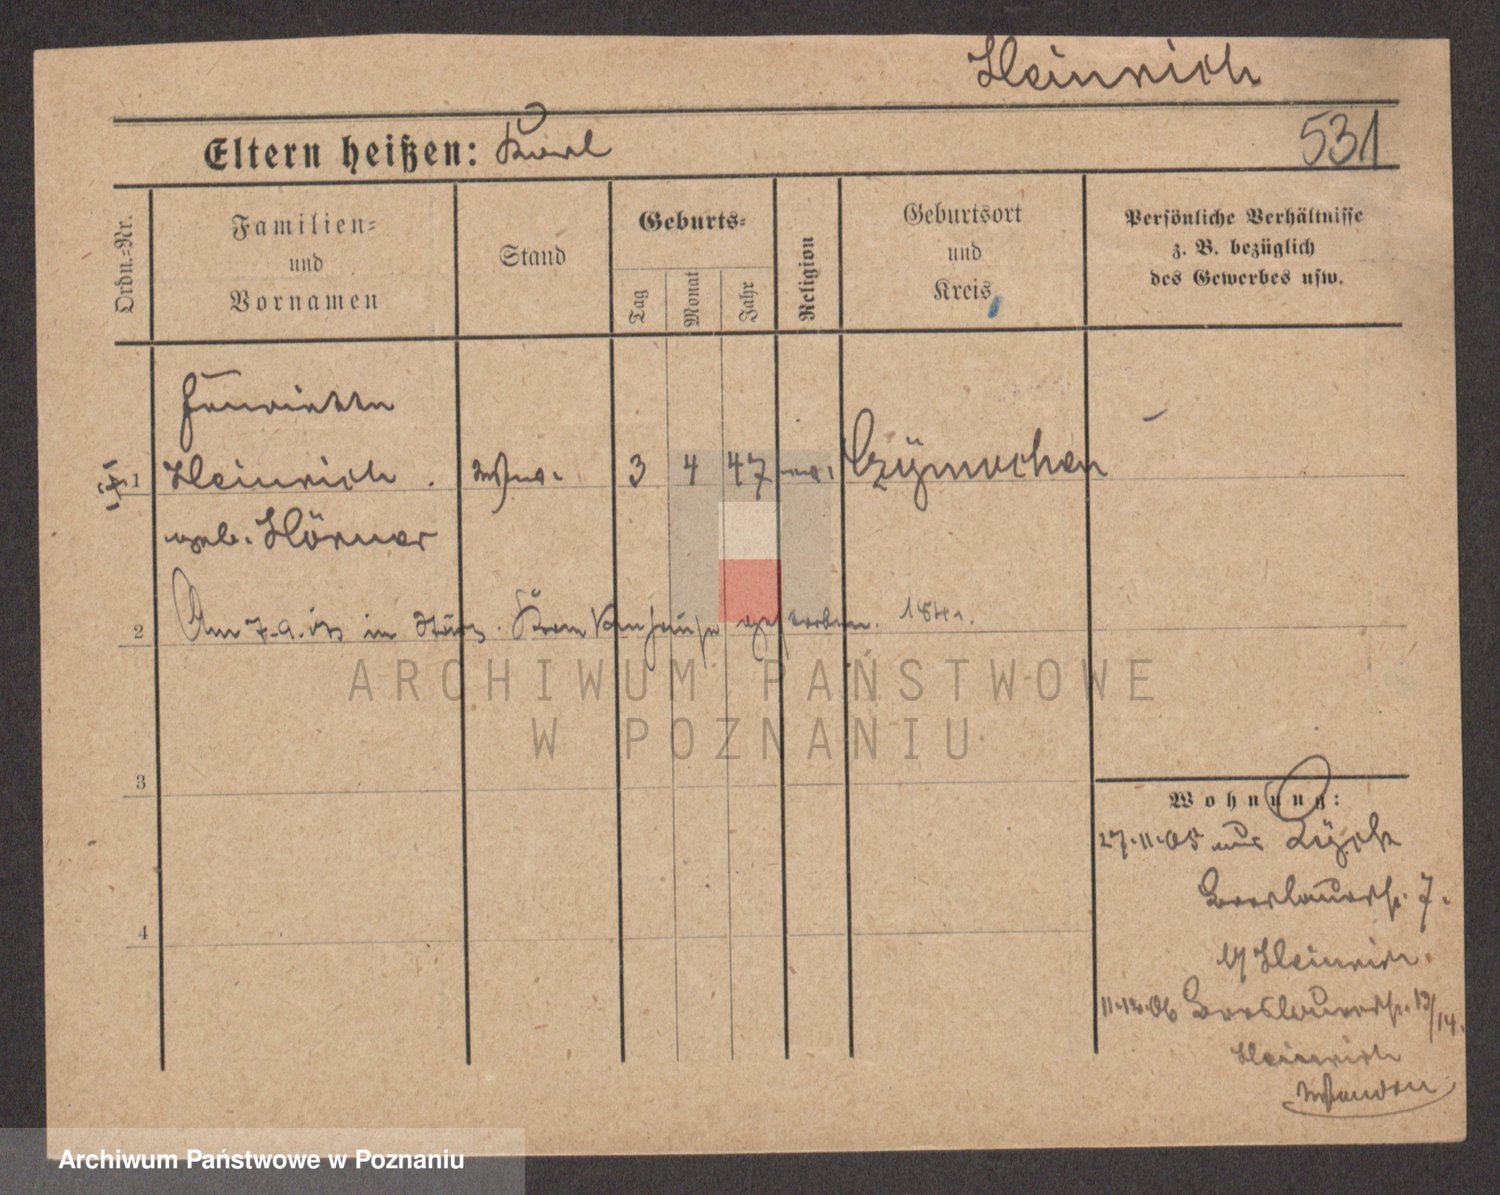 Heinrich
Eltern heißen: Karl
531
Ordn.=Nr.
Familien=
und
Vornamen
Stand
Geburts=
Tag
Monat
Jahr
Religion
Geburtsort
und
Kreis
Persönliche Verhältnisse
z. B. bezüglich
des Gewerbes usw.
Henriette
1 Heinrich 3 4 47 Czymochen
geb. Hörner
2 Am 7. 9. in Krankenhause gestorben.
ARCHIWUM PAŃSTWOWE
W POZNANIU
3
Wohnung:
27.11.05 aus Lyck
Breslauerstr. 7.
4
Heinrich
11.12.06 Breslauerstr. 13/14.
Heinrich
Archiwum Państwowe w Poznaniu